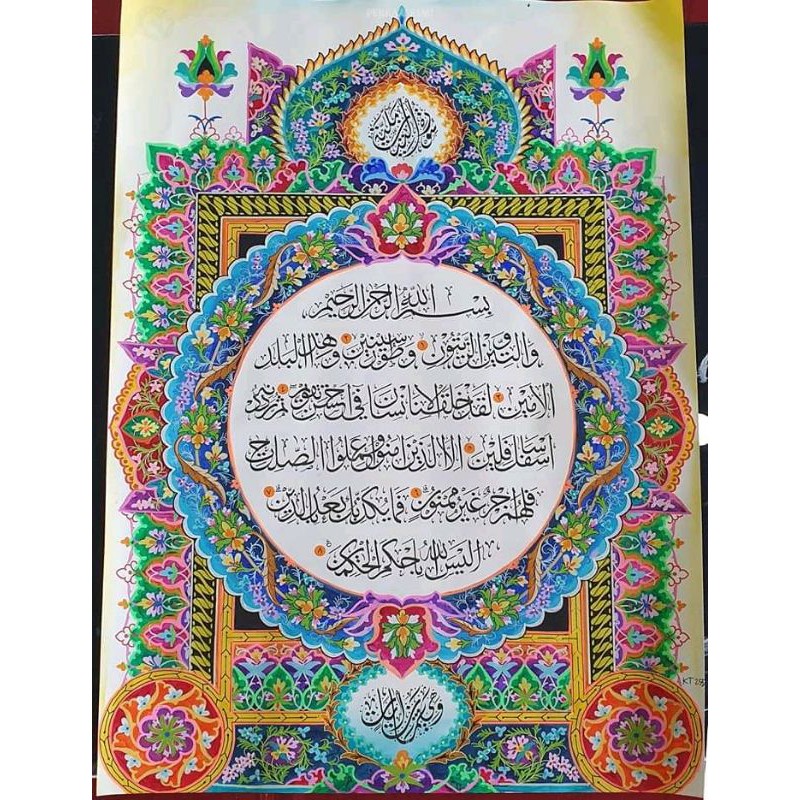 سورة التين
بسم الله الرحمن الرحيم
والتين والزيتون ١ وطور سينين ٢ وهذا البلد
الامين ٣ لقد خلقنا الانسان في احسن تقويم ٤ ثم رددنه
اسفل سافلين ٥ الا الذين امنوا وعملوا الصلحت
فلهم اجر غير ممنون ٦ فما يكذبك بعد بالدين ٧
اليس الله باحكم الحكمين ٨
KT